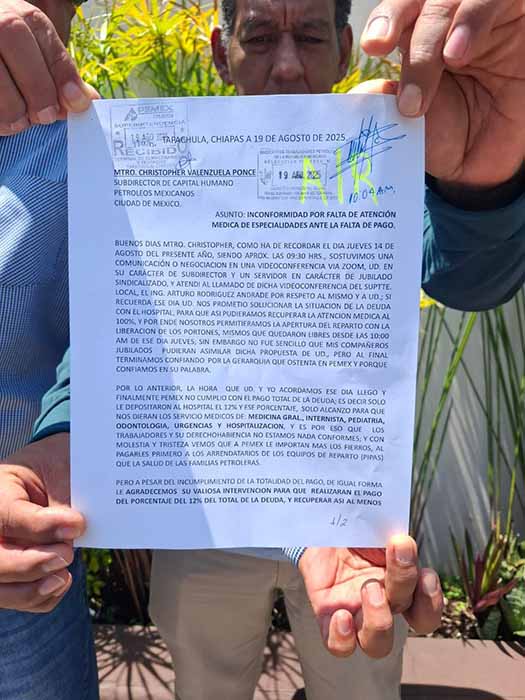 PEMEX
SUPERINTENDENCIA
19 AGO 2025
RECIBIDO
TAPACHULA, CHIAPAS A 19 DE AGOSTO DE 2025.
19 AGO 2025
AIR
10:04 A.M.
MTRO. CHRISTOPHER VALENZUELA PONCE
SUBDIRECTOR DE CAPITAL HUMANO
PETROLEOS MEXICANOS
CIUDAD DE MEXICO.
ASUNTO: INCONFORMIDAD POR FALTA DE ATENCIÓN
MEDICA DE ESPECIALIDADES ANTE LA FALTA DE PAGO.
BUENOS DIAS MTRO. CHRISTOPHER, COMO HA DE RECORDAR EL DIA JUEVES 14 DE
AGOSTO DEL PRESENTE AÑO, SIENDO APROX. LAS 09:30 HRS., SOSTUVIMOS UNA
COMUNICACIÓN O NEGOCIACION EN UNA VIDEOCONFERENCIA VIA ZOOM, UD. EN
SU CARÁCTER DE SUBDIRECTOR Y UN SERVIDOR EN CARÁCTER DE JUBILADO
SINDICALIZADO, Y ATENDI AL LLAMADO DE DICHA VIDEOCONFERENCIA DEL SUPTTE.
LOCAL, EL ING. ARTURO RODRIGUEZ ANDRADE POR RESPETO AL MISMO Y A UD.; SI
RECUERDA ESE DIA UD. NOS PROMETIO SOLUCIONAR LA SITUACION DE LA DEUDA
CON EL HOSPITAL, PARA QUE ASI PUDIERAMOS RECUPERAR LA ATENCION MEDICA AL
100%, Y POR ENDE NOSOTROS PERMITIERAMOS LA APERTURA DEL REPARTO CON LA
LIBERACION DE LOS PORTONES, MISMOS QUE QUEDARON LIBRES DESDE LAS 10:00
AM DE ESE DIA JUEVES; SIN EMBARGO NO FUE SENCILLO QUE MIS COMPAÑEROS
JUBILADOS PUDIERAN ASIMILAR DICHA PROPUESTA DE UD., PERO AL FINAL
TERMINAMOS CONFIANDO POR LA GERARQUIA QUE OSTENTA EN PEMEX Y PORQUE
CONFIAMOS EN SU PALABRA.
POR LO ANTERIOR, LA HORA QUE UD. Y YO ACORDAMOS ESE DIA LLEGO Y
FINALMENTE PEMEX NO CUMPLIO CON EL PAGO TOTAL DE LA DEUDA; ES DECIR SOLO
LE DEPOSITARON AL HOSPITAL EL 12% Y ESE PORCENTAJE, SOLO ALCANZO PARA QUE
NOS DIERAN LOS SERVICIO MEDICOS DE: MEDICINA GRAL., INTERNISTA, PEDIATRIA,
ODONTOLOGIA, URGENCIAS Y HOSPITALIZACION, Y ES POR ESO QUE LOS
TRABAJADORES Y SU DERECHOHABIENCIA NO ESTAMOS NADA CONFORMES; Y CON
MOLESTIA Y TRISTEZA VEMOS QUE A PEMEX LE IMPORTAN MAS LOS FIERROS, AL
PAGARLES PRIMERO A LOS ARRENDATARIOS DE LOS EQUIPOS DE REPARTO (PIPAS)
QUE LA SALUD DE LAS FAMILIAS PETROLERAS.
PERO A PESAR DEL INCUMPLIMIENTO DE LA TOTALIDAD DEL PAGO, DE IGUAL FORMA
LE AGRADECEMOS SU VALIOSA INTERVENCION PARA QUE REALIZARAN EL PAGO
DEL PORCENTAJE DEL 12% DEL TOTAL DE LA DEUDA, Y RECUPERAR ASI AL MENOS
1/2